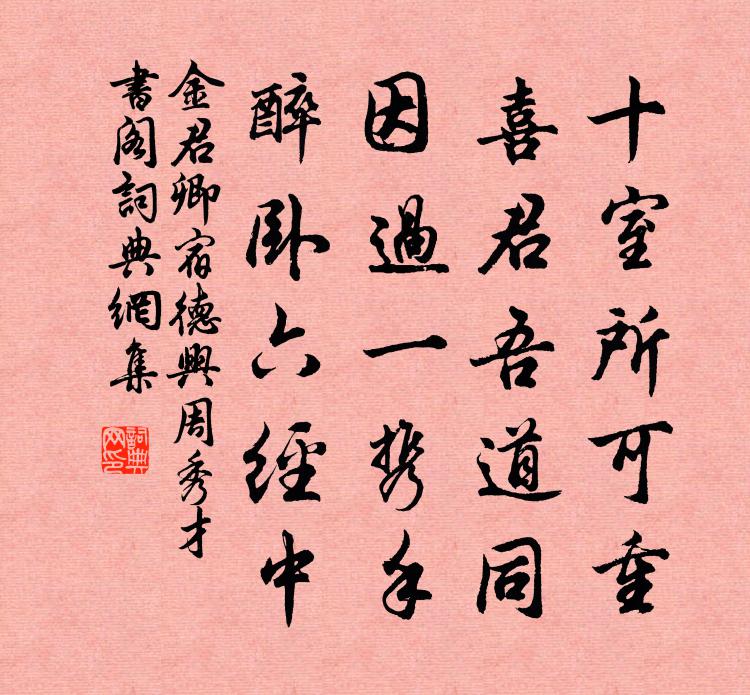 十室所可重
喜君吾道同
因過一携手
醉卧六經中
金君卿宿德興周秀才
書閣詞典網集
詞典網印